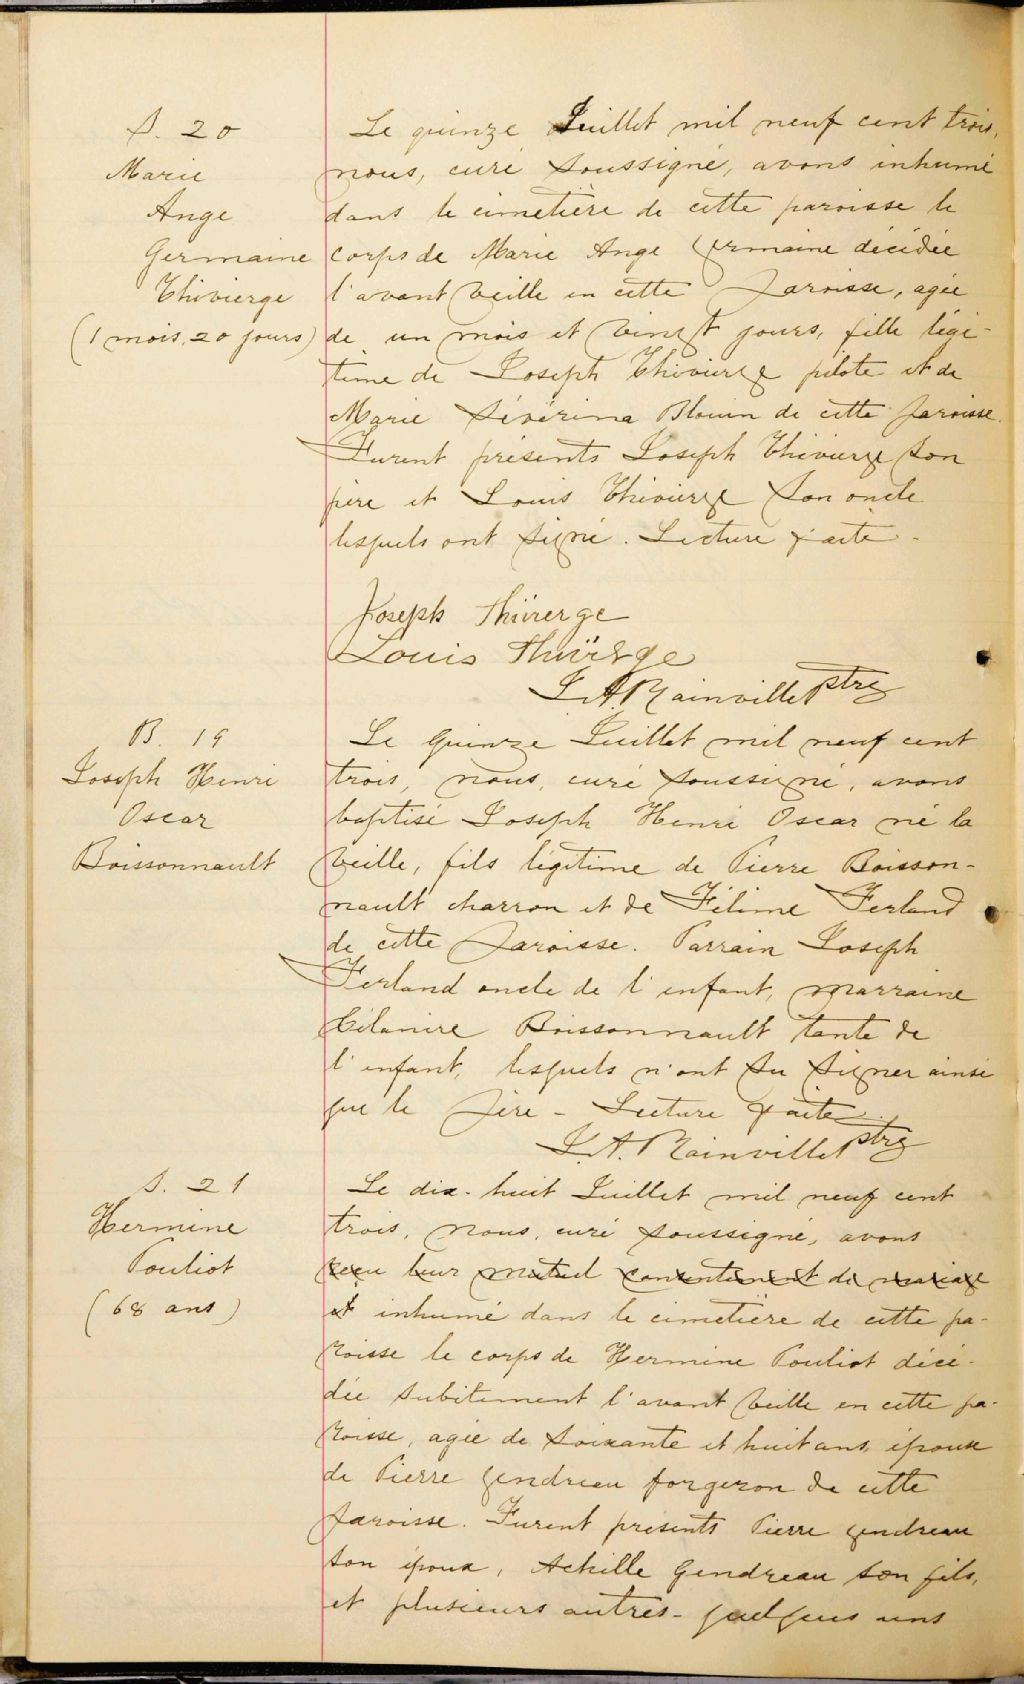 S. 20
Marie
Ange
Germaine
Thivierge
(1 mois, 20 jours)
Le quinze Juillet mil neuf cent trois,
nous, curé soussigné, avons inhumé
dans le cimetière de cette paroisse le
corps de Marie Ange Germaine décédée
l'avant veille en cette Paroisse, agée
de un mois et vingt jours, fille légi-
time de Joseph Thivierge pilote et de
Marie Sévérina Blouin de cette Paroisse.
Furent présents Joseph Thivierge son
père et Louis Thivierge son oncle
lesquels ont signé. Lecture faite -
Joseph Thivierge
Louis Thivierge
J. A. Rainville Ptre
B. 19
Joseph Henri
Oscar
Boissonnault
Le quinze Juillet mil neuf cent
trois, nous, curé soussigné, avons
baptisé Joseph Henri Oscar né la
veille, fils légitime de Pierre Boisson-
nault charron et de Félime Ferland
de cette Paroisse. Parrain Joseph
Ferland oncle de l'enfant, marraine
Célanire Boissonnault tante de
l'enfant, lesquels n'ont su signer ainsi
que le Père - Lecture faite.
J. A. Rainville Ptre
S. 21
Hermine
Pouliot
(68 ans)
Le dix-huit Juillet mil neuf cent
trois, nous, curé soussigné, avons
reçu leur mutuel consentement de mariage
et inhumé dans le cimetière de cette pa-
roisse le corps de Hermine Pouliot décé-
dée subitement l'avant veille en cette pa-
roisse, agée de soixante et huit ans, épouse
de Pierre Gendreau forgeron de cette
Paroisse. Furent présents Pierre Gendreau
son époux, Achille Gendreau son fils,
et plusieurs autres - quelques uns